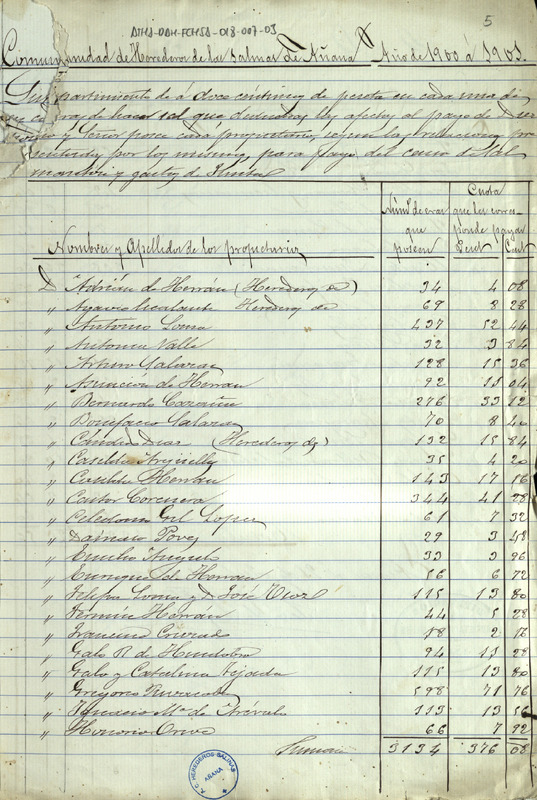 ATHA-DAH-FCHSA-018-007-03
5
Comunidad de Herederos de las Salinas de Añana Año de 1900 á 1901.
repartimiento de á doce céntimos de peseta en cada una de
de hacer sal que
y Señor posee cada propietario, según las relaciones pre
sentadas por los mismos, para pago del censo de
y gastos de
Nombres y Apellidos de los propietarios
Núm.º de eras que poseen
Cuota que les corresponde pagar
Pesets Cents
D. Adrián de Herrán (Herederos de) 34 4 08
" Herederos de 69 8 28
" Antonio Loma 437 52 44
" Antonia Valle 32 3 84
" Arturo Salazar 128 15 36
" Asunción de Herrán 92 11 04
" Bernardo 276 33 12
" Bonifacio Salazar 70 8 40
" Cándido Diaz (Herederos de) 132 15 84
" Casilda 35 4 20
" Herrán 143 17 16
" Castor Corcuera 344 41 28
" Celedonia Gil Lopez 61 7 32
" Dámaso Povez 29 3 48
" Emilio Angulo 33 3 96
" Enrique de Herrán 56 6 72
" Felipa Loma y D. José 115 13 80
" Fermín Herrán 44 5 28
" 18 2 16
" Galo R. de 94 11 28
" Galo y Catalina Tejada 115 13 80
" Gregorio 598 71 76
" Ignacio Mª de Arévalo 113 13 56
" Honorio 66 7 92
Suman 3134 376 08
HEREDEROS SALINAS
AÑANA